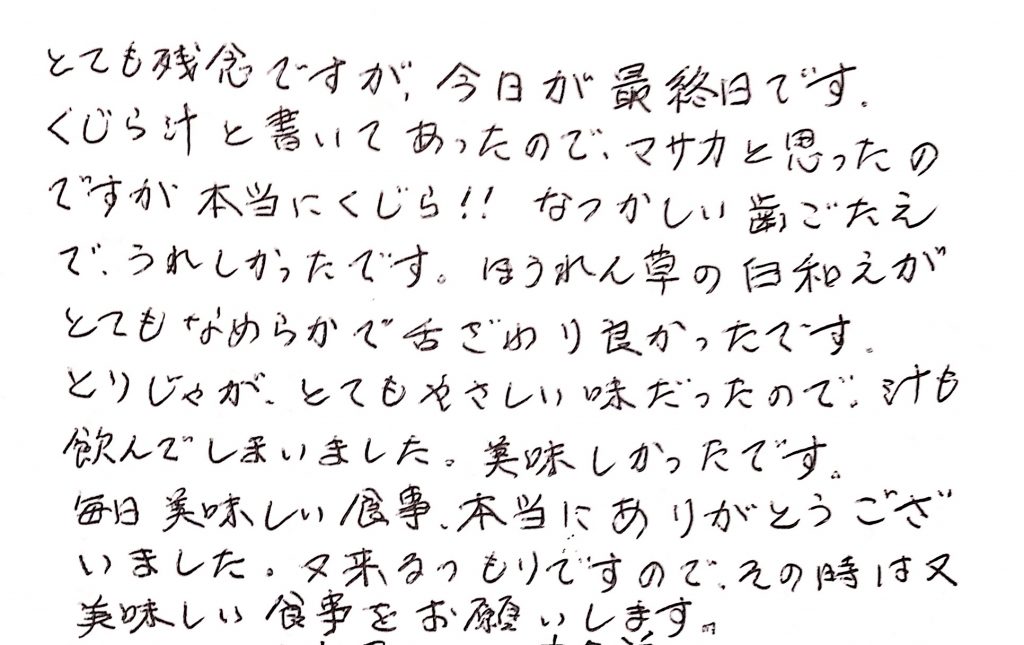 とても残念ですが、今日が最終日です。
くじら汁と書いてあったので、マサカと思ったの
ですが本当にくじら!! なつかしい歯ごたえ
で、うれしかったです。ほうれん草の白和えが
とてもなめらかで舌ざわり良かったです。
とりじゃが、とてもやさしい味だったので、汁も
飲んでしまいました。美味しかったです。
毎日美味しい食事、本当にありがとうござ
いました。又来るつもりですので、その時は又
美味しい食事をお願いします。